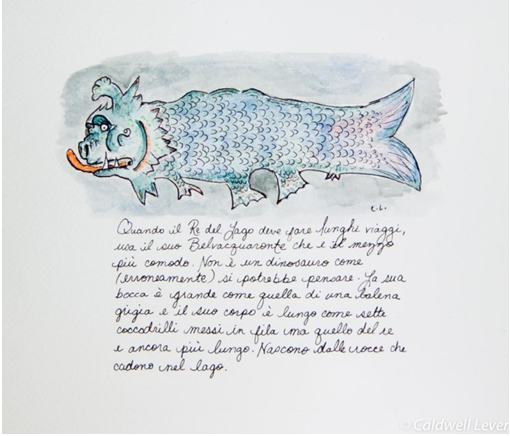 c.l.
Quando il Re del Lago deve fare lunghi viaggi,
usa il suo Belvacquaronte che è il mezzo
più comodo. Non è un dinosauro come
(erroneamente) si potrebbe pensare. La sua
bocca è grande come quella di una balena
grigia e il suo corpo è lungo come sette
coccodrilli messi in fila ma quello del re
è ancora più lungo. Nascono dalle rocce che
cadono nel lago.
© Caldwell Lever